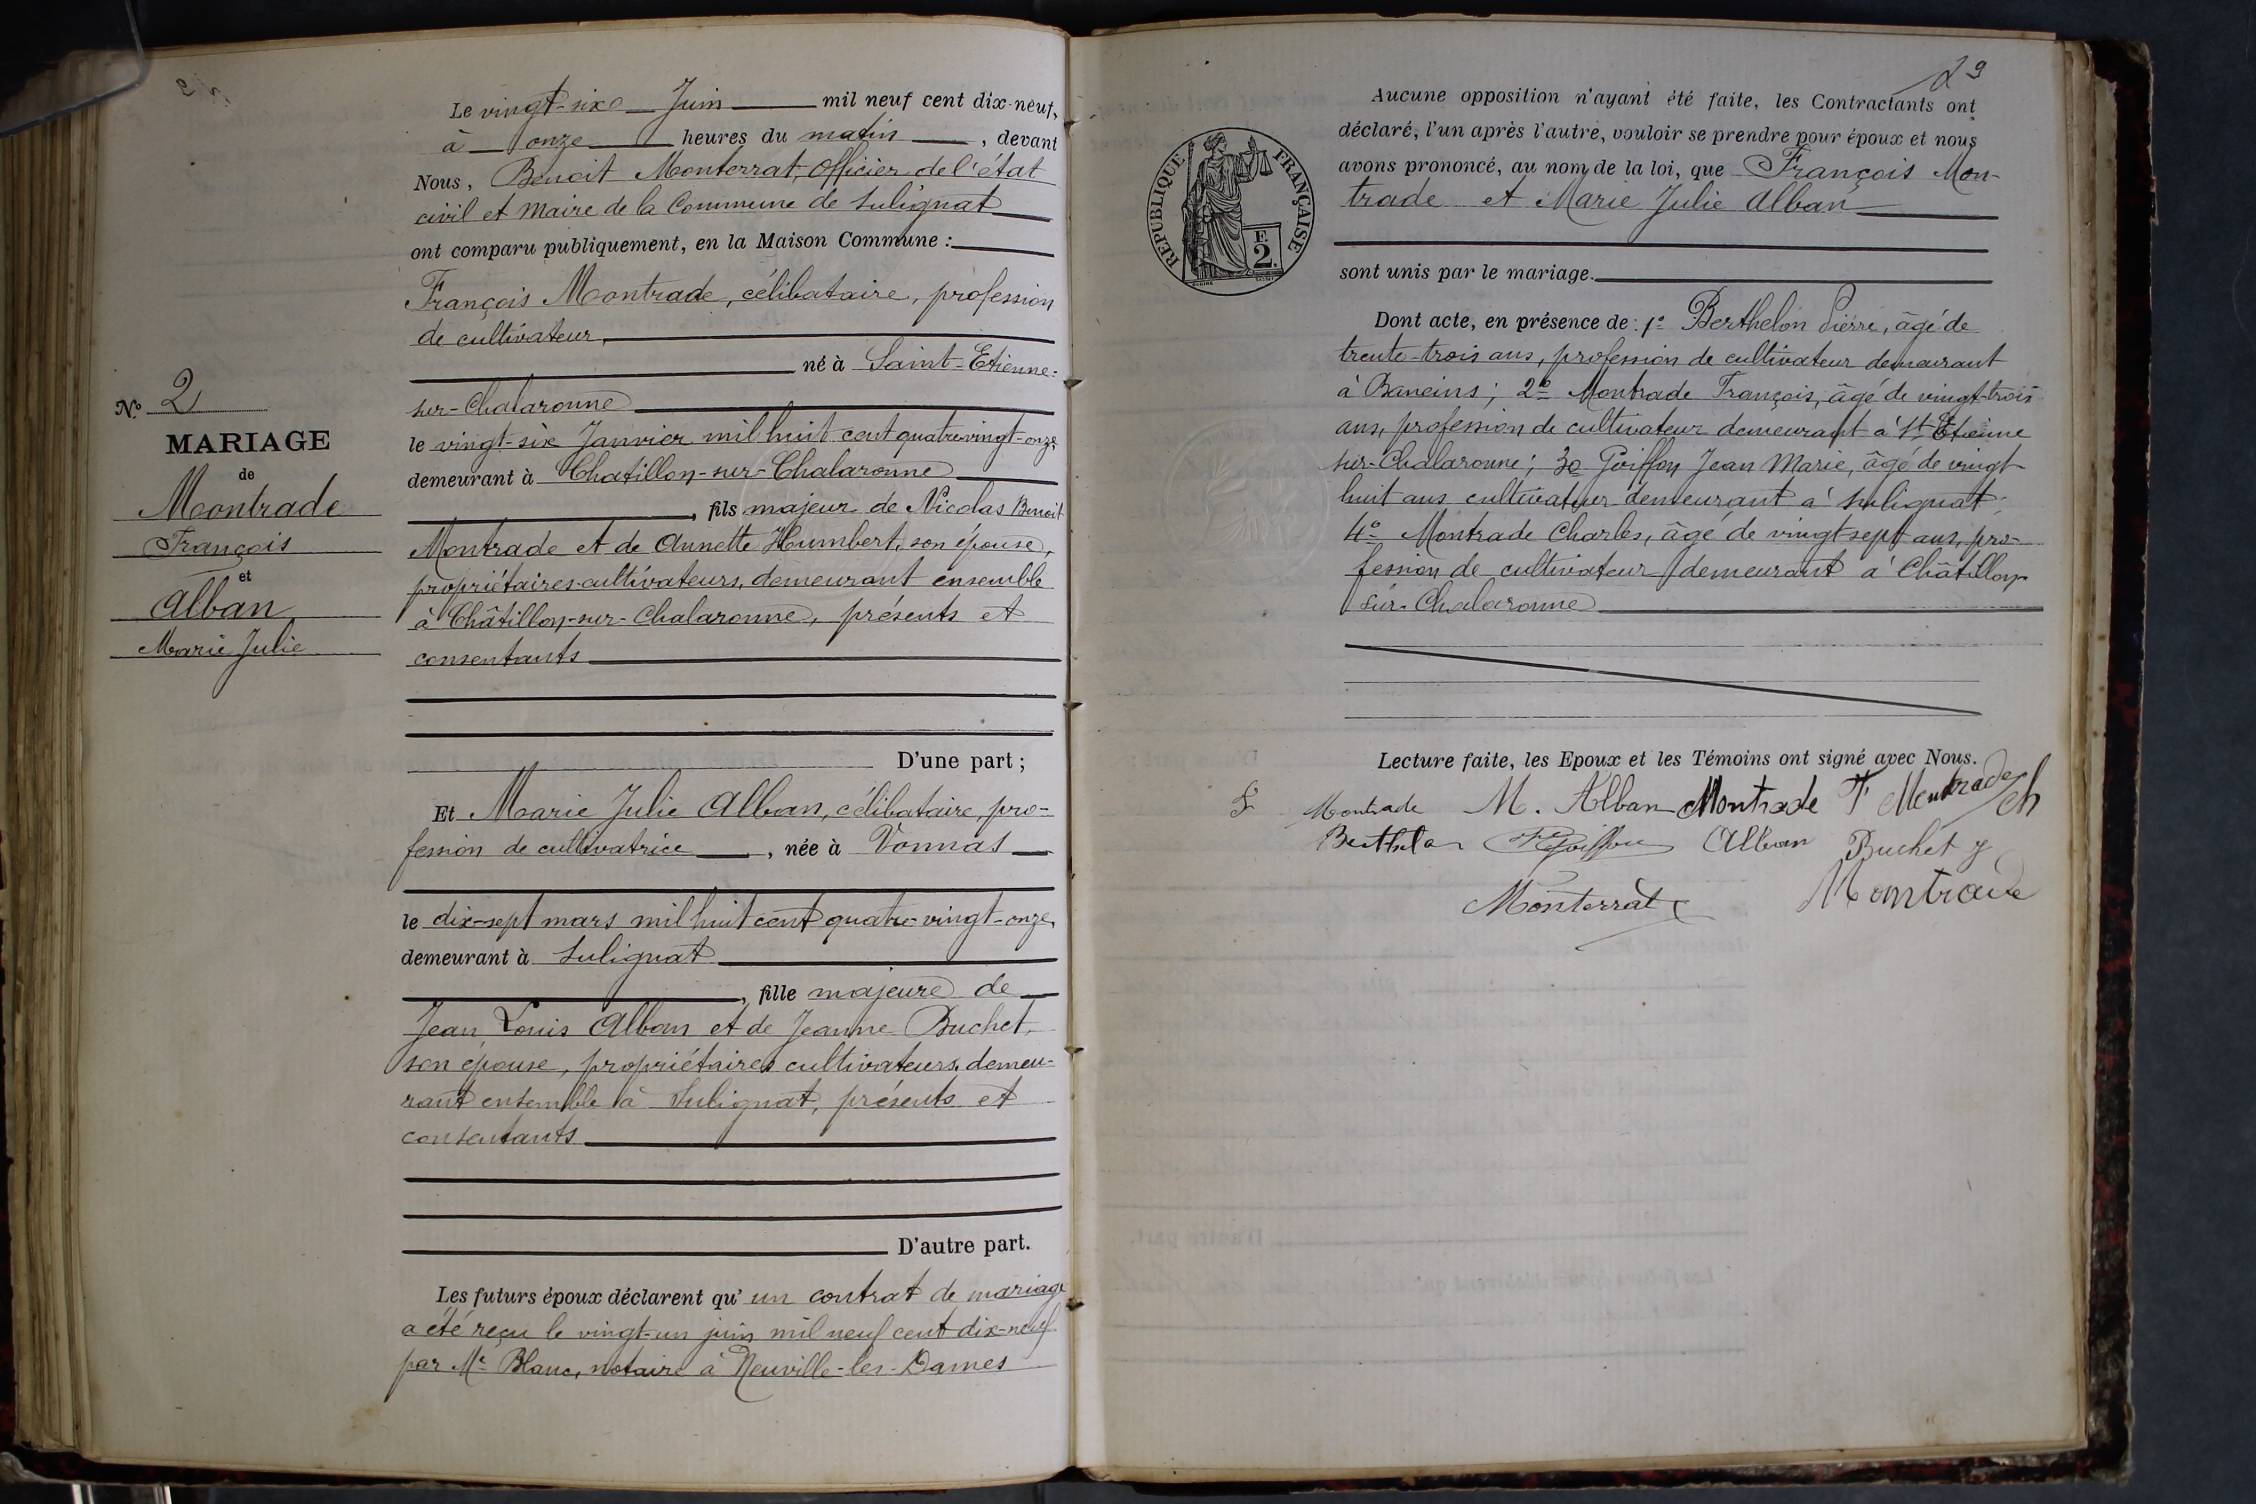 Le vingt-six Juin mil neuf cent dix-neuf,
à onze heures du matin, devant
Nous, Benoit Monterrat, Officier de l'état
civil et Maire de la Commune de Sulignat
ont comparu publiquement, en la Maison Commune :
François Montrade, célibataire, profession
de cultivateur,
né à Saint-Etienne-
sur-Chalaronne
le vingt-six Janvier mil huit cent quatre-vingt-onze,
demeurant à Chatillon-sur-Chalaronne
, fils majeur de Nicolas Benoit
Montrade et de Annette Humbert, son épouse,
propriétaires-cultivateurs, demeurant ensemble
à Châtillon-sur-Chalaronne, présents et
consentants
D'une part ;
Et Marie Julie Alban, célibataire, pro-
fession de cultivatrice, née à Vonnas
le dix-sept mars mil huit cent quatre-vingt-onze,
demeurant à Sulignat
, fille majeure de
Jean Louis Alban et de Jeanne Buchet,
son épouse, propriétaires cultivateurs, demeu-
rant ensemble à Sulignat, présents et
consentants
D'autre part.
Les futurs époux déclarent qu'un contrat de mariage
a été reçu le vingt-un juin mil neuf cent dix-neuf
par Me Blanc, notaire à Neuville-les-Dames
N° 2
MARIAGE
de
Montrade
François
et
Alban
Marie Julie
29
RÉPUBLIQUE FRANÇAISE
F.
2.
Aucune opposition n'ayant été faite, les Contractants ont
déclaré, l'un après l'autre, vouloir se prendre pour époux et nous
avons prononcé, au nom de la loi, que François Mon-
trade et Marie Julie Alban
sont unis par le mariage.
Dont acte, en présence de : 1° Berthelon Pierre, âgé de
trente-trois ans, profession de cultivateur demeurant
à Baneins ; 2° Montrade François, âgé de vingt-trois
ans, profession de cultivateur demeurant à St Etienne
sur-Chalaronne ; 3° Goiffon Jean Marie, âgé de vingt
huit ans cultivateur demeurant à Sulignat ;
4° Montrade Charles, âgé de vingt-sept ans, pro-
fession de cultivateur demeurant à Châtillon
sur-Chalaronne
Lecture faite, les Epoux et les Témoins ont signé avec Nous.
Montrade M. Alban Montrade F Montrade ch
Berthelon Goiffon Alban Buchet J
Monterrat Montrade